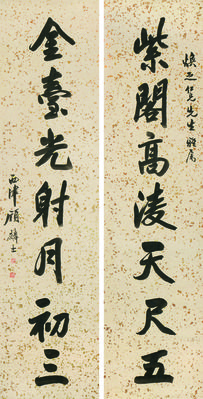 先生雅屬
紫閣高淩天尺五
金臺光射月初三
西津顧麟士